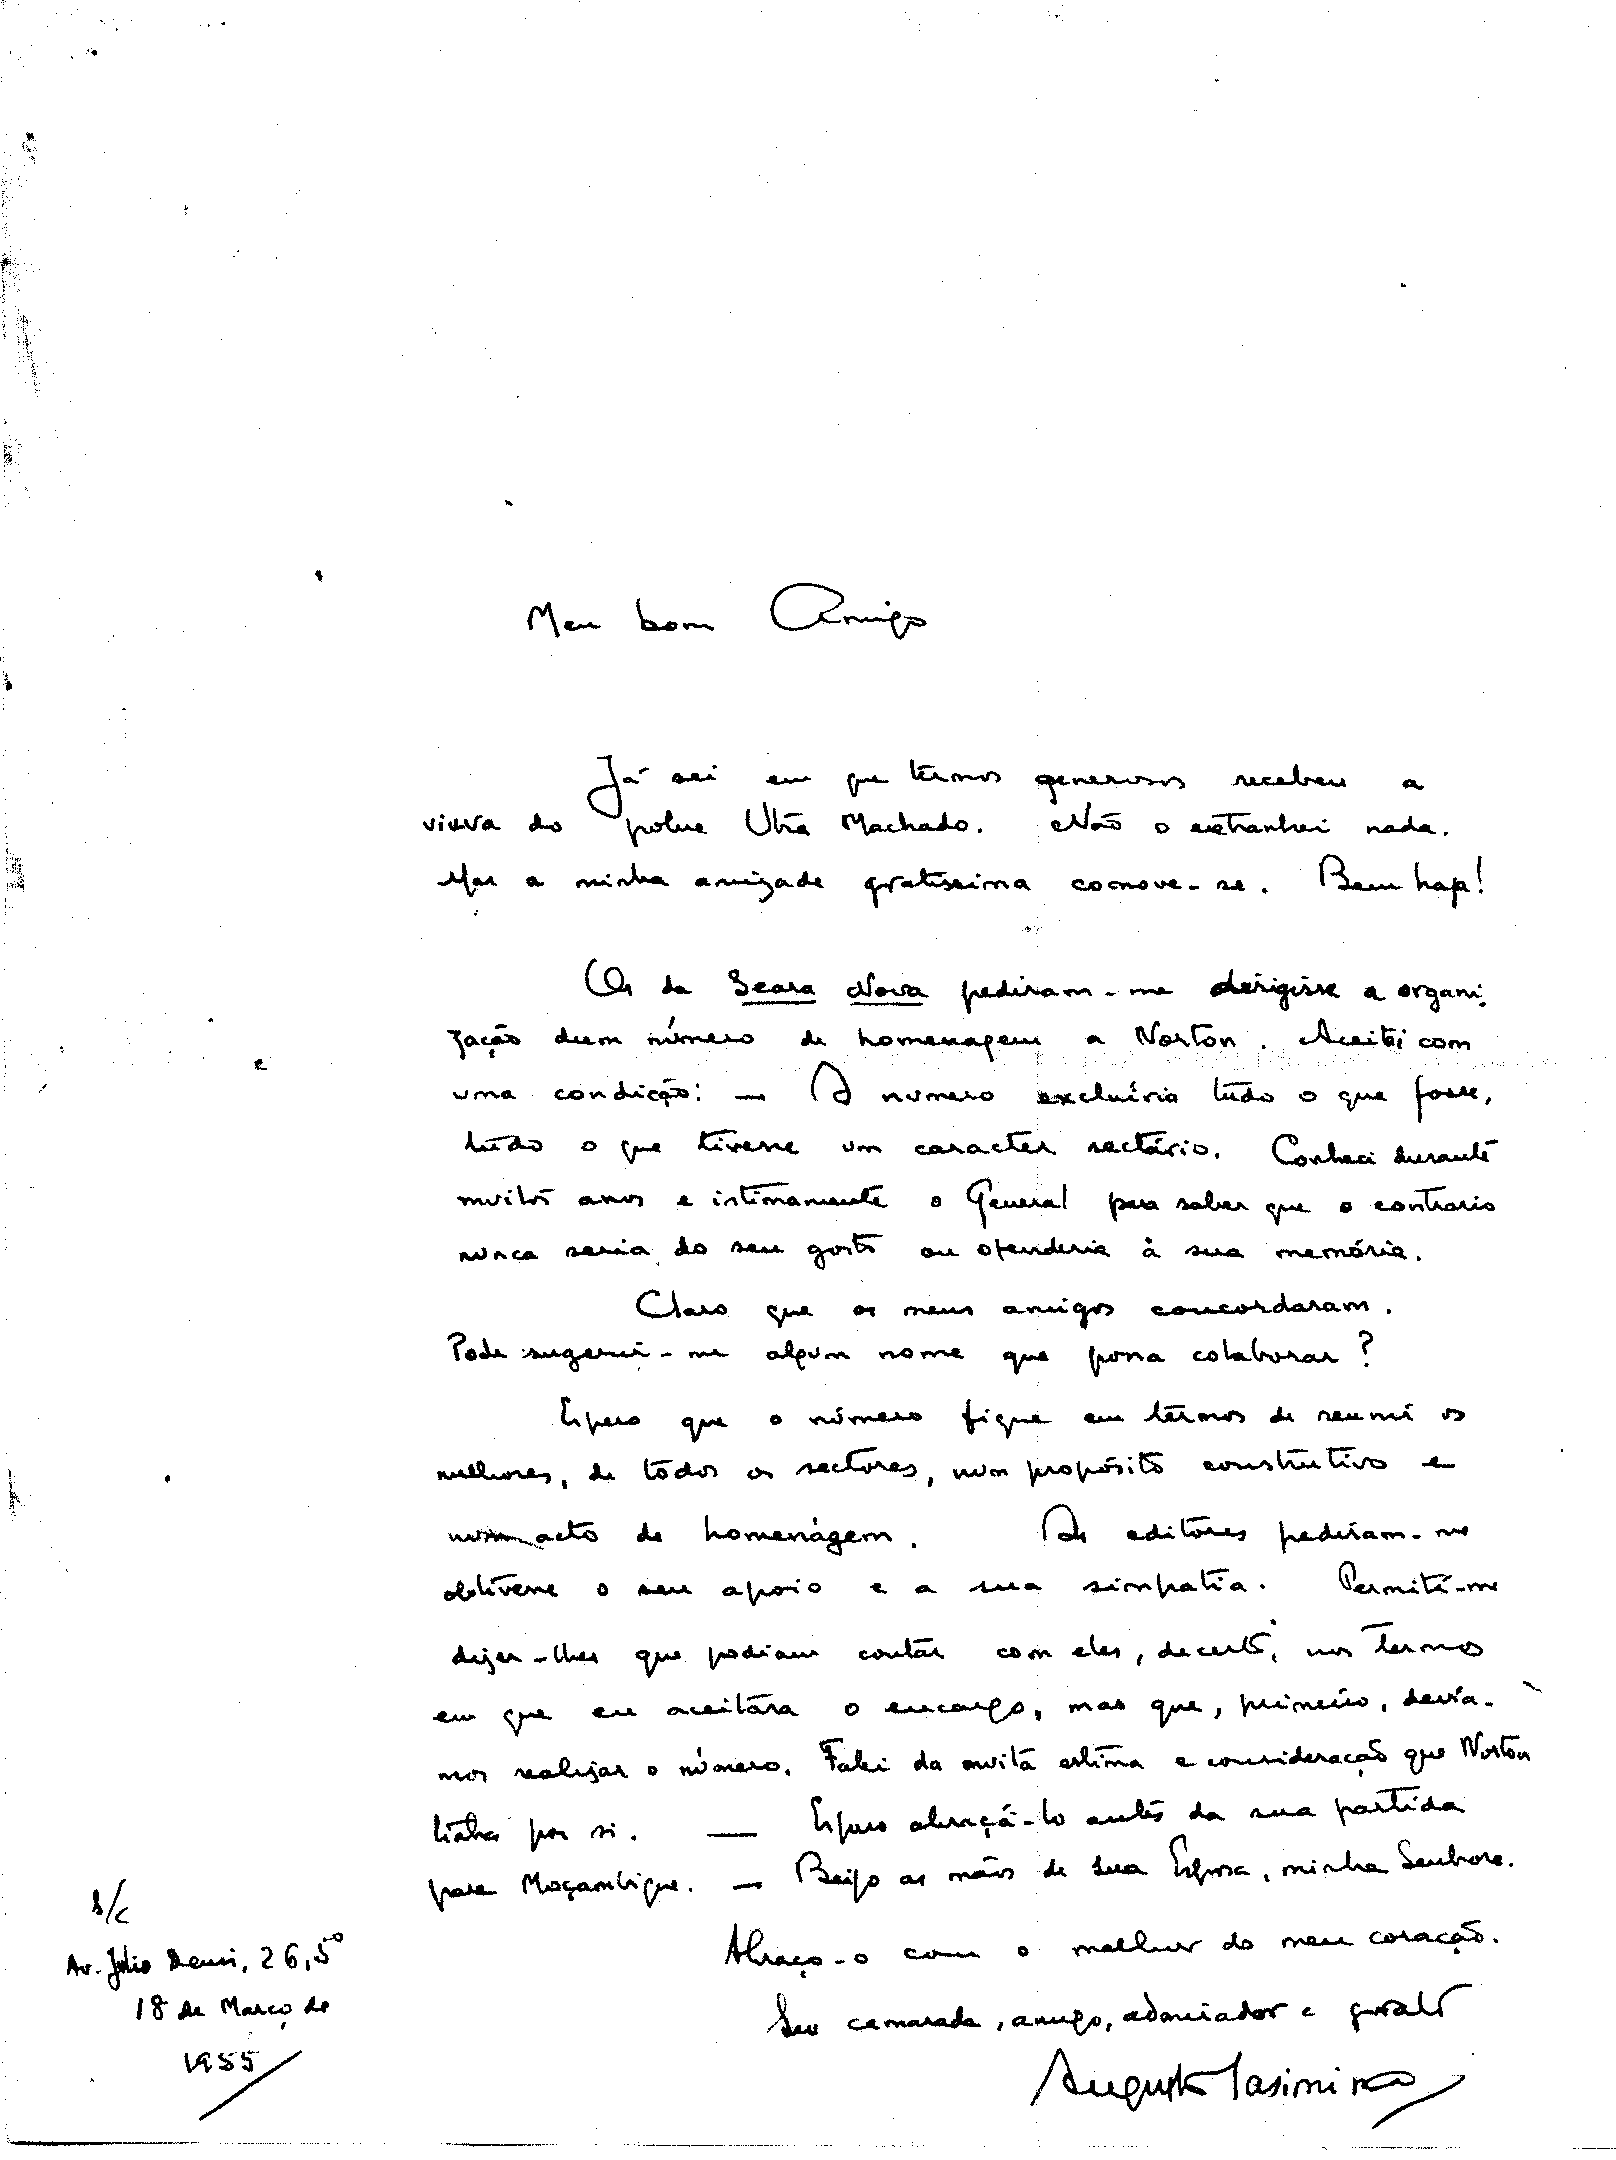 Meu bom Amigo
Já sei em que termos generosos recebeu a
viuva do pobre Utra Machado. Não o extranhei nada.
Mas a minha amizade gratissima comove-se. Bem haja!
Os da Seara Nova pediram-me dirigisse a organi-
zação dum número de homenagem a Norton. Aceitei com
uma condição: — O número excluíria tudo o que fosse,
tudo o que tivesse um caracter sectário. Conheci durante
muitos anos e intimamente o General para saber que o contrario
nunca seria do seu gosto ou ofenderia à sua memória.
Claro que os meus amigos concordaram.
Pode sugerir-me algum nome que possa colaborar?
Espero que o número fique em termos de reunir os
melhores, de todos os sectores, num propósito construtivo e
num acto de homenágem. Os editores pediram-me
obtivesse o seu apoio e a sua simpatia. Permiti-me
dizer-lhes que podiam contar com eles, decerto, nos termos
em que eu aceitára o encargo, mas que, primeiro, devía-
mos realizar o número. Falei da muita estima e consideração que Norton
tinha por si. — Espero abraçá-lo antes da sua partida
para Moçambique. — Beijo as mãos de Sua Esposa, minha Senhora.
Abraço-o com o melhor do meu coração.
Seu camarada, amigo, admirador e grato
Augusto Casimiro
s/c
Av. Júlio Denis, 26, 5º
18 de Março de
1955